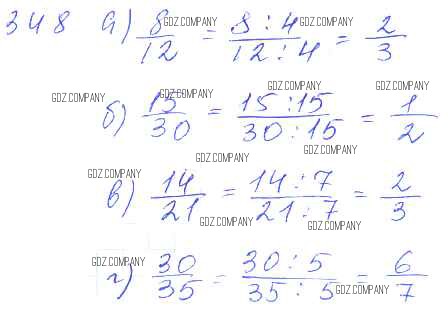 348 а) 8/12 = 8 : 4/12 : 4 = 2/3
б) 15/30 = 15 : 15/30 : 15 = 1/2
в) 14/21 = 14 : 7/21 : 7 = 2/3
г) 30/35 = 30 : 5/35 : 5 = 6/7
GDZ.COMPANY
GDZ.COMPANY
GDZ.COMPANY
GDZ.COMPANY
GDZ.COMPANY
GDZ.COMPANY
GDZ.COMPANY
GDZ.COMPANY
GDZ.COMPANY
GDZ.COMPANY
GDZ.COMPANY
GDZ.COMPANY
GDZ.COMPANY